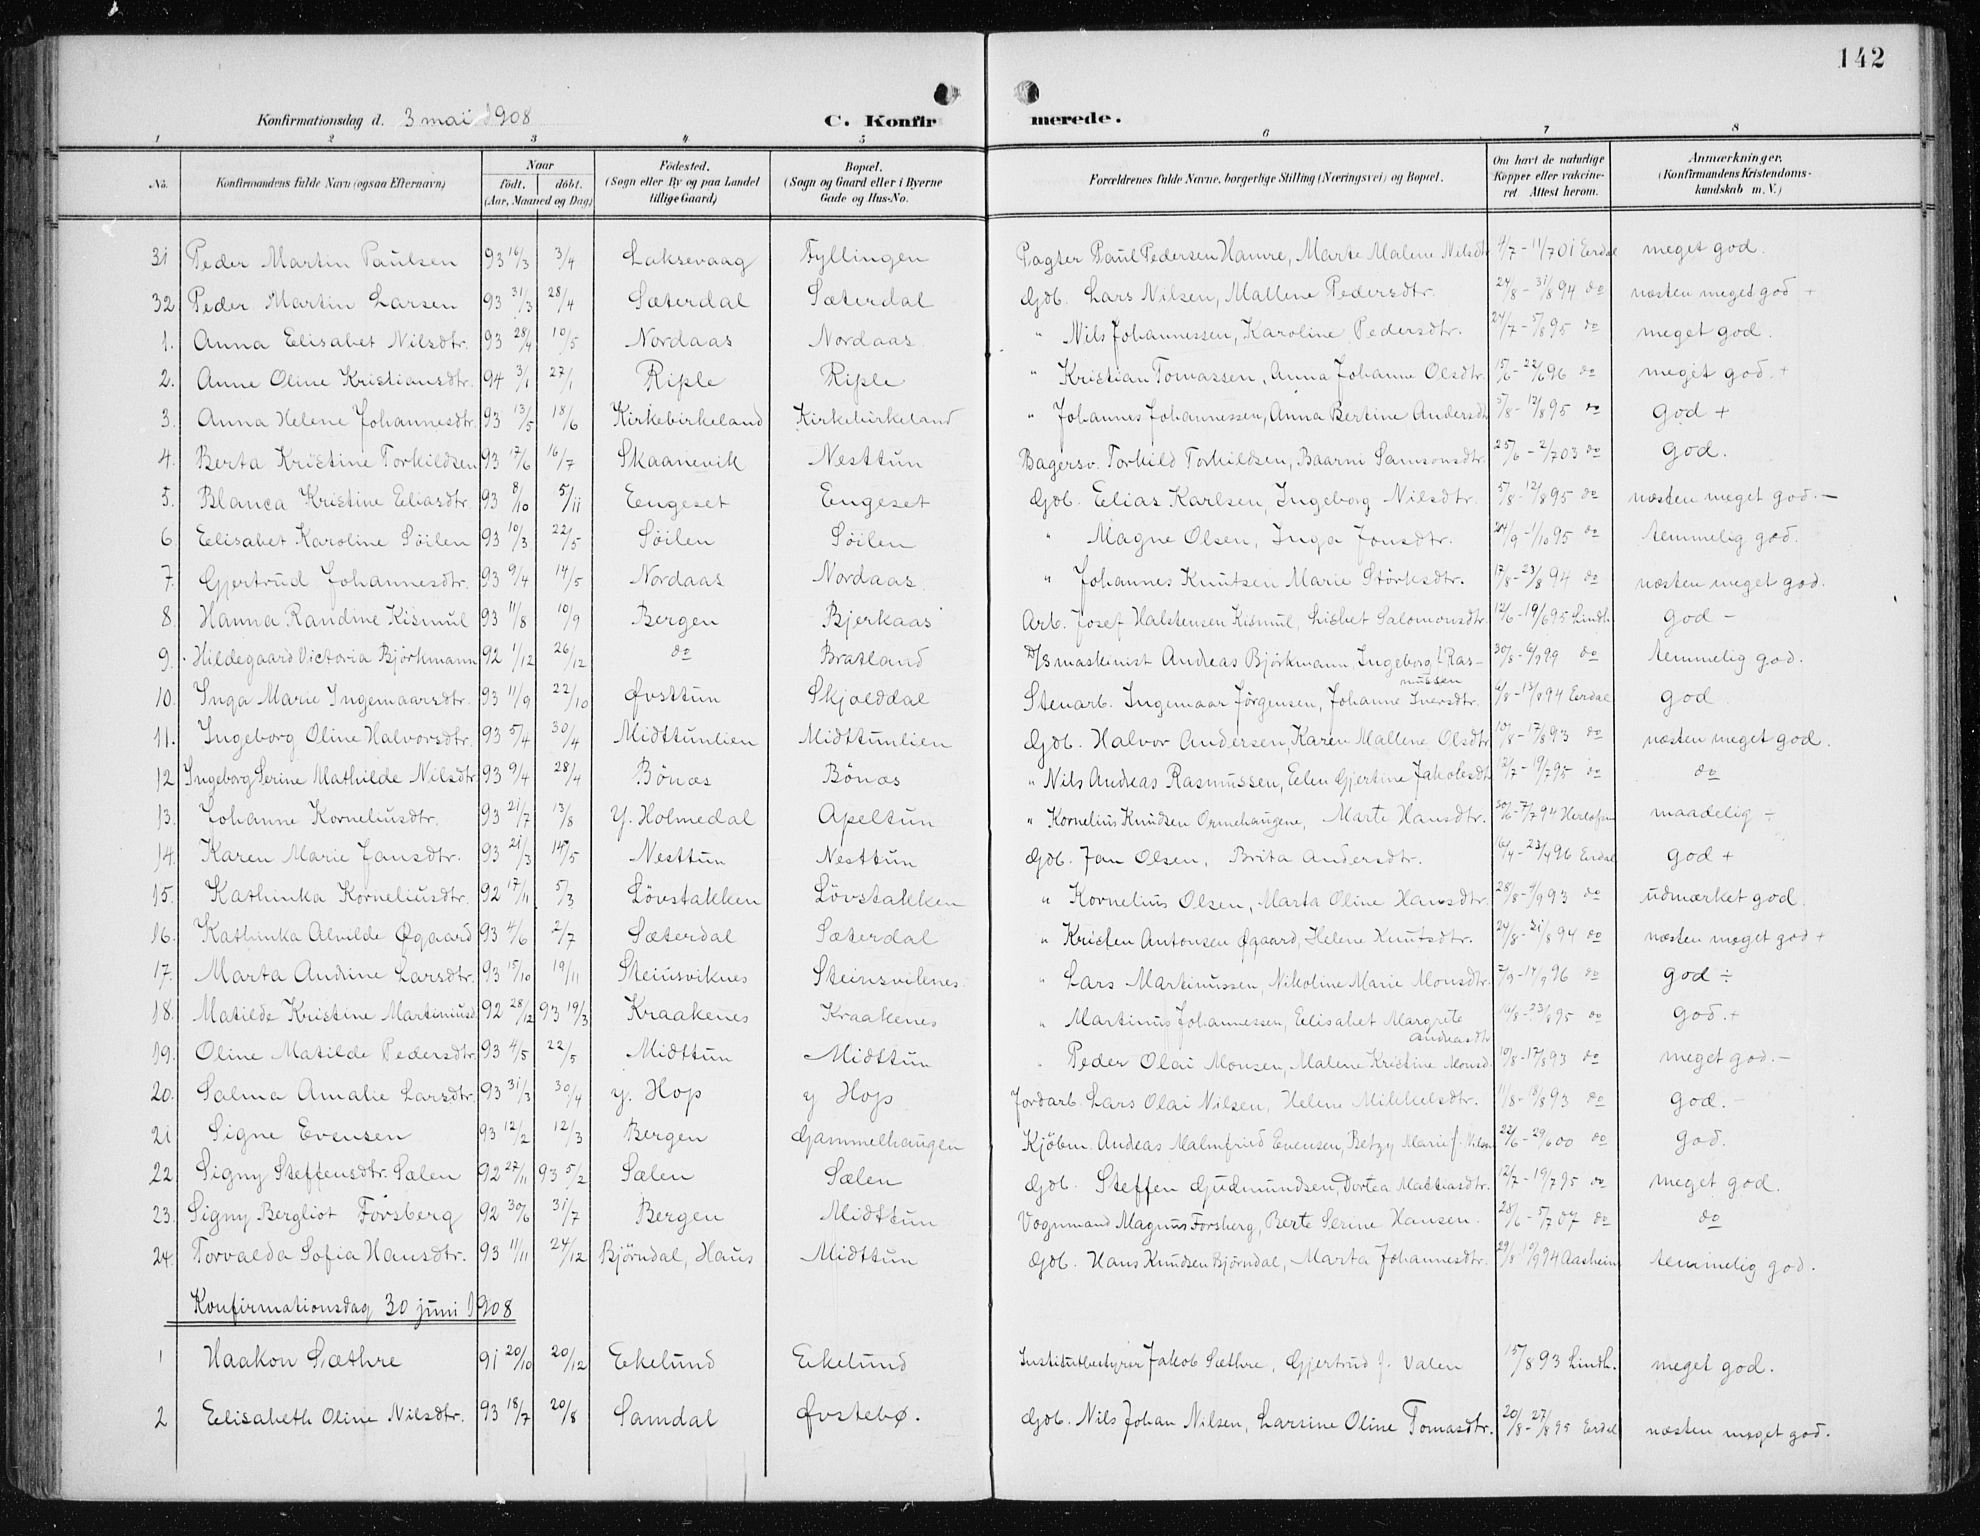 142
Konfirmationsdag d. 3 mai 1908 C. Konfirmerede.
1 2 3 4 5 6 7 8
No. Konfirmandens fulde Navn (ogsaa Efternavn) Naar født. døbt. (Aar, Maaned og Dag) Fødested. (Sogn eller By og paa Landet tillige Gaard) Bopæl. (Sogn og Gaard eller i Byerne Gade og Hus-No. Forældrenes fulde Navne, borgerlige Stilling (Næringsvei) og Bopæl. Om havt de naturlige Kopper eller vaccineret. Attest herom. Anmærkninger. (Konfirmandens Kristendomskundskab m. V.)
31 Peder Martin Paulsen 93 16/3 3/4 Laksevaag Fyllingen Pagter Paul Pedersen Hamre, Marte Malene Nilsdtr 4/7 - 11/7 01 Erdal meget god.
32. Peder Martin Larsen 93 31/3 28/4 Sæterdal Sæterdal Gdb. Lars Nilsen, Mallene Pedersdtr. 24/8 - 31/8 94 do næsten meget god +
1. Anna Elisabet Nilsdtr. 93 28/4 10/5 Nordaas Nordaas " Nils Johannessen, Karoline Pedersdtr. 24/7 - 5/8 95 do meget god.
2. Anne Oline Kristiansdtr. 94 3/1 27/1 Riple Riple " Kristian Tomassen, Anna Johanne Olsdtr. 15/6 - 22/6 96 do meget god. +
3. Anna Helene Johannesdtr. 93 13/5 18/6 Kirkebirkeland Kirkebirkeland " Johannes Johannessen, Anna Bertine Andersdtr 5/8 - 12/8 95 do god +
4. Berta Kristine Torkildsen 93 17/6 16/7 Skaanevik Nesttun Bagersv. Torkild Torkildsen, Baarni Samsonsdtr. 25/6 - 2/7 03 do god.
5. Blanca Kristine Eliasdtr 93 8/10 5/11 Engeset Engeset Gdb. Elias Karlsen, Ingeborg Nilsdtr. 5/8 - 12/8 95 do næsten meget god. -
6. Elisabet Karoline Söilen 93 10/3 22/5 Söilen Söilen " Magne Olsen, Inga Jonsdtr. 24/9 - 1/10 95 do temmelig god.
7. Gjertrud Johannesdtr. 93 9/4 14/5 Nordaas Nordaas " Johannes Knutsen Marie Störksdtr. 17/8 - 23/8 94 do næsten meget god.
8. Hanna Randine Kismul 93 11/8 10/9 Bergen Bjerkaas Arb. Josef Halstensen Kismul, Lisbet Salomonsdtr. 12/6 - 19/6 95 Lindh. god -
9. Hildegaard Victoria Björkmann 92 1/12 26/12 do Bratland D/S maskinist Andreas Björkmann, Ingeborg f. Ras-
mussen 30/8 - 6/9 99 do temmelig god.
10. Inga Marie Ingemaarsdtr. 93 11/9 22/10 Øvsttun Skjolddal Stenarb. Ingemaar Jørgensen, Johanne Iversdtr. 6/8 - 13/8 94 Erdal god
11. Ingeborg Oline Halvorsdtr. 93 5/4 30/4 Midttunlien Midttunlien Gdb. Halvor Andersen, Karen Mallene Olsdtr 10/8 - 17/8 93 do næsten meget god.
12 Ingeborg Serine Mathilde Nilsdtr. 93 9/4 28/4 Bönæs Bönæs " Nils Andreas Rasmussen, Elen Gjertine Jakobsdtr 12/7 - 19/7 95 do do
13. Johanne Korneliusdtr. 93 21/7 13/8 Y. Holmedal Apeltun " Kornelius Knudsen Ormehaugene, Marte Hansdtr. 30/6 - 7/7 94 maadelig ÷
14. Karen Marie Jansdtr. 93 21/3 14/5 Nesttun Nesttun Gdb. Jan Olsen, Brita Andersdtr. 16/4 - 23/4 96 Erdal god +
15. Kathinka Korneliusdtr. 92 17/11 5/3 Lövstakken Lövstakken " Kornelius Olsen, Marta Oline Hansdtr. 28/8 - 4/9 93 do udmærket god.
16. Kathinka Alvilde Øgaard 93 4/6 2/7 Sæterdal Sæterdal " Kristen Antonsen Øgaard, Helene Knutsdtr. 24/8 - 31/8 94 do næsten meget god +
17. Marta Andrine Larsdtr. 93 15/10 19/11 Steinsviknes Steinsviknes. " Lars Martinussen, Nikoline Marie Monsdtr. 7/9 - 14/9 96 do god ÷
18. Matilde Kristine Martinusd 92 28/12 93 19/3 Kraakenes Kraakenes " Martinus Johannessen, Elisabet Margrete
Andreasdtr 16/8 - 23/8 95 do god. +
19. Oline Matilde Pedersdtr. 93 4/5 22/5 Midttun Midttun " Peder Olai Monsen, Malene Kristine Monsd. 10/8 - 17/8 93 do meget god. -
20. Salma Amalie Larsdtr. 93 31/3 30/4 y. Hop y Hop Jordarb. Lars Olai Nilsen, Helene Mikkelsdtr. 11/8 - 18/8 93 do god. -
21 Signe Evensen 93 12/2 12/3 Bergen Gammelhaugen Kjöbm. Andreas Malmfried Evensen, Betzy Marie f. Nilsen 22/6 - 29/6 00 do god.
22. Signy Steffensdtr. Sælen 92 27/11 93 5/2 Sælen Sælen Gdb. Steffen Gudmundsen, Dortea Mattiasdtr. 12/7 - 19/7 95 do meget god.
23. Signy Bergliot Forsberg 92 30/6 31/7 Bergen Midttun Vognmand Magnus Forsberg, Berte Serine Hansen. 28/6 - 5/7 07 do do
24. Torvalda Sofia Hansdtr. 93 11/11 24/12 Björndal, Haus Midttun Gdb. Hans Knudsen Björndal, Marta Johannesdtr. 29/8 - 10/9 94 Aasheim temmelig god.
Konfirmationsdag 30 juni 1908
1 Haakon Sæthre 91 20/10 20/12 Ekelund Ekelund Institutbestyrer Jakob Sæthre, Gjertrud f. Valen 15/8 93 Lindh. meget god.
2 Elisabeth Oline Nilsdtr. 93 18/7 20/8 Samdal Øvstebø. Gdb. Nils Johan Nilsen, Larsine Oline Tomasdtr. 20/8 - 27/8 95 Erdal næsten meget god.